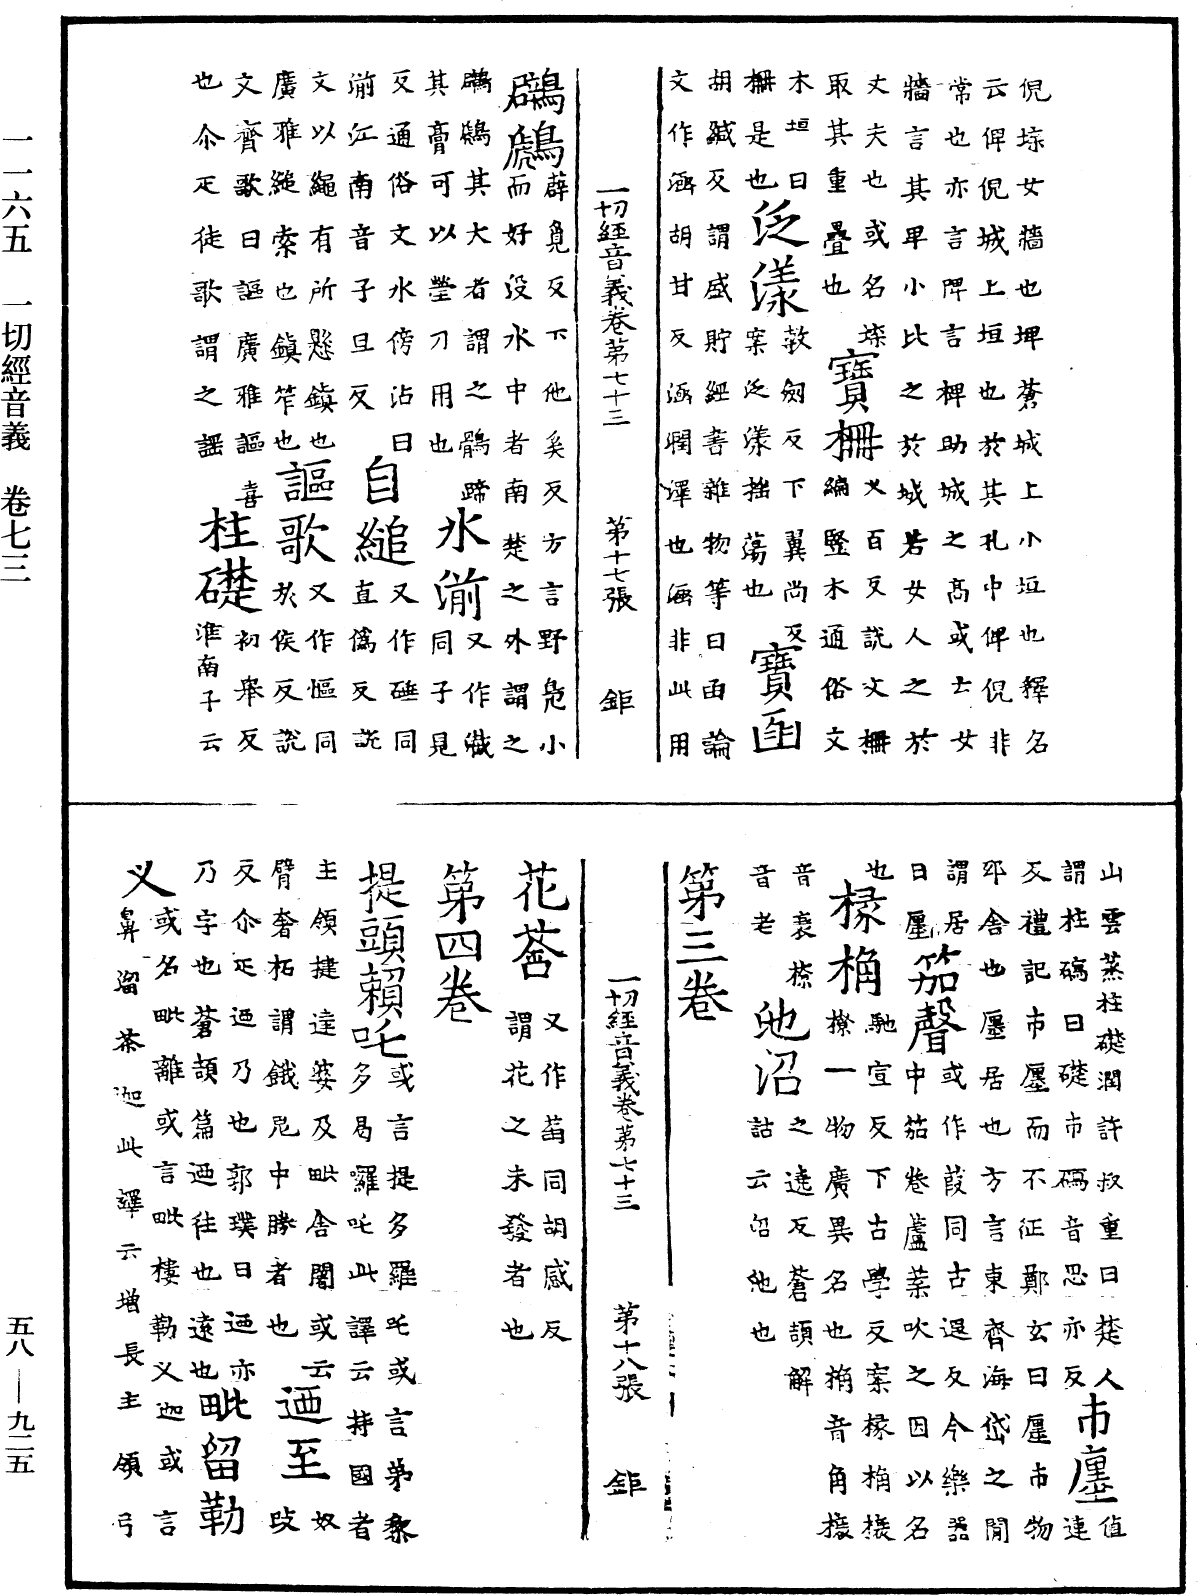 倪埰女牆也埤蒼城上小垣也釋名
云俾倪城上垣也於其孔中俾倪非
常也亦言陴言裨助城之高或士女
牆言其卑小比之於城若女人之於
丈夫也或名堞 寶柵 叉百反說文柵
取其重疊也 編豎木通俗文
木垣曰 泛漾 敦劒反下翼尚反 寶函
柵是也 案泛漾摇蕩也
胡緘反謂盛貯經書雜物等曰函論
文作涵胡甘反涵潤澤也涵非此用
一切經音義卷第七十三 第十七張 鉅
鷿鷉 薜覓反下他奚反方言野鳧小
而好没水中者南楚之外謂之
鷿鷉其大者謂之鶻蹄 水湔 又作濺
其膏可以瑩刀用也 同子見
反通俗文水傍沾曰 自縋 又作硾同
湔江南音子旦反 直僞反說
文以繩有所懸鎮也 謳歌 又作慪同
廣雅縋索也鎮笮也 於侯反說
文齊歌曰謳廣雅謳喜 柱礎 初舉反
也尒疋徒歌謂之謡 淮南子云
山雲蒸柱礎潤許叔重曰楚人 市㕓 值
謂柱碣曰礎市碣音思亦反 連
反禮記市㕓而不征鄭玄曰㕓市物
邸舍也㕓居也方言東齊海岱之間
謂居 笳聲 或作葭同古遐反今樂器
曰㕓 中笳卷蘆葉吹之因以名
也 椽桷 馳宣反下古學反案椽桷榱
橑一物廣異名也桷音角榱
音衰橑 池沼 之遶反蒼頡解
音老 詁云沼池也
第三卷
一切經音義卷第七十三 第十八張 鉅
花䓿 又作菡同胡感反
謂花之未發者也
第四卷
提頭賴吒 或言提多羅吒或言弟黎
多曷囉吒此譯云持國者
主領揵達婆及毗舍闍或云 迺至 奴
臂奢柘謂餓鬼中勝者也 改
反尒疋迺乃也郭璞曰迺亦 毗留勒
乃字也蒼頡篇迺往也遠也
叉 或名毗離或言毗棲勒叉迦或言
鼻溜荼迦此譯云增長主領弓
一一六五 一切經音義 卷七三
五八—九二五